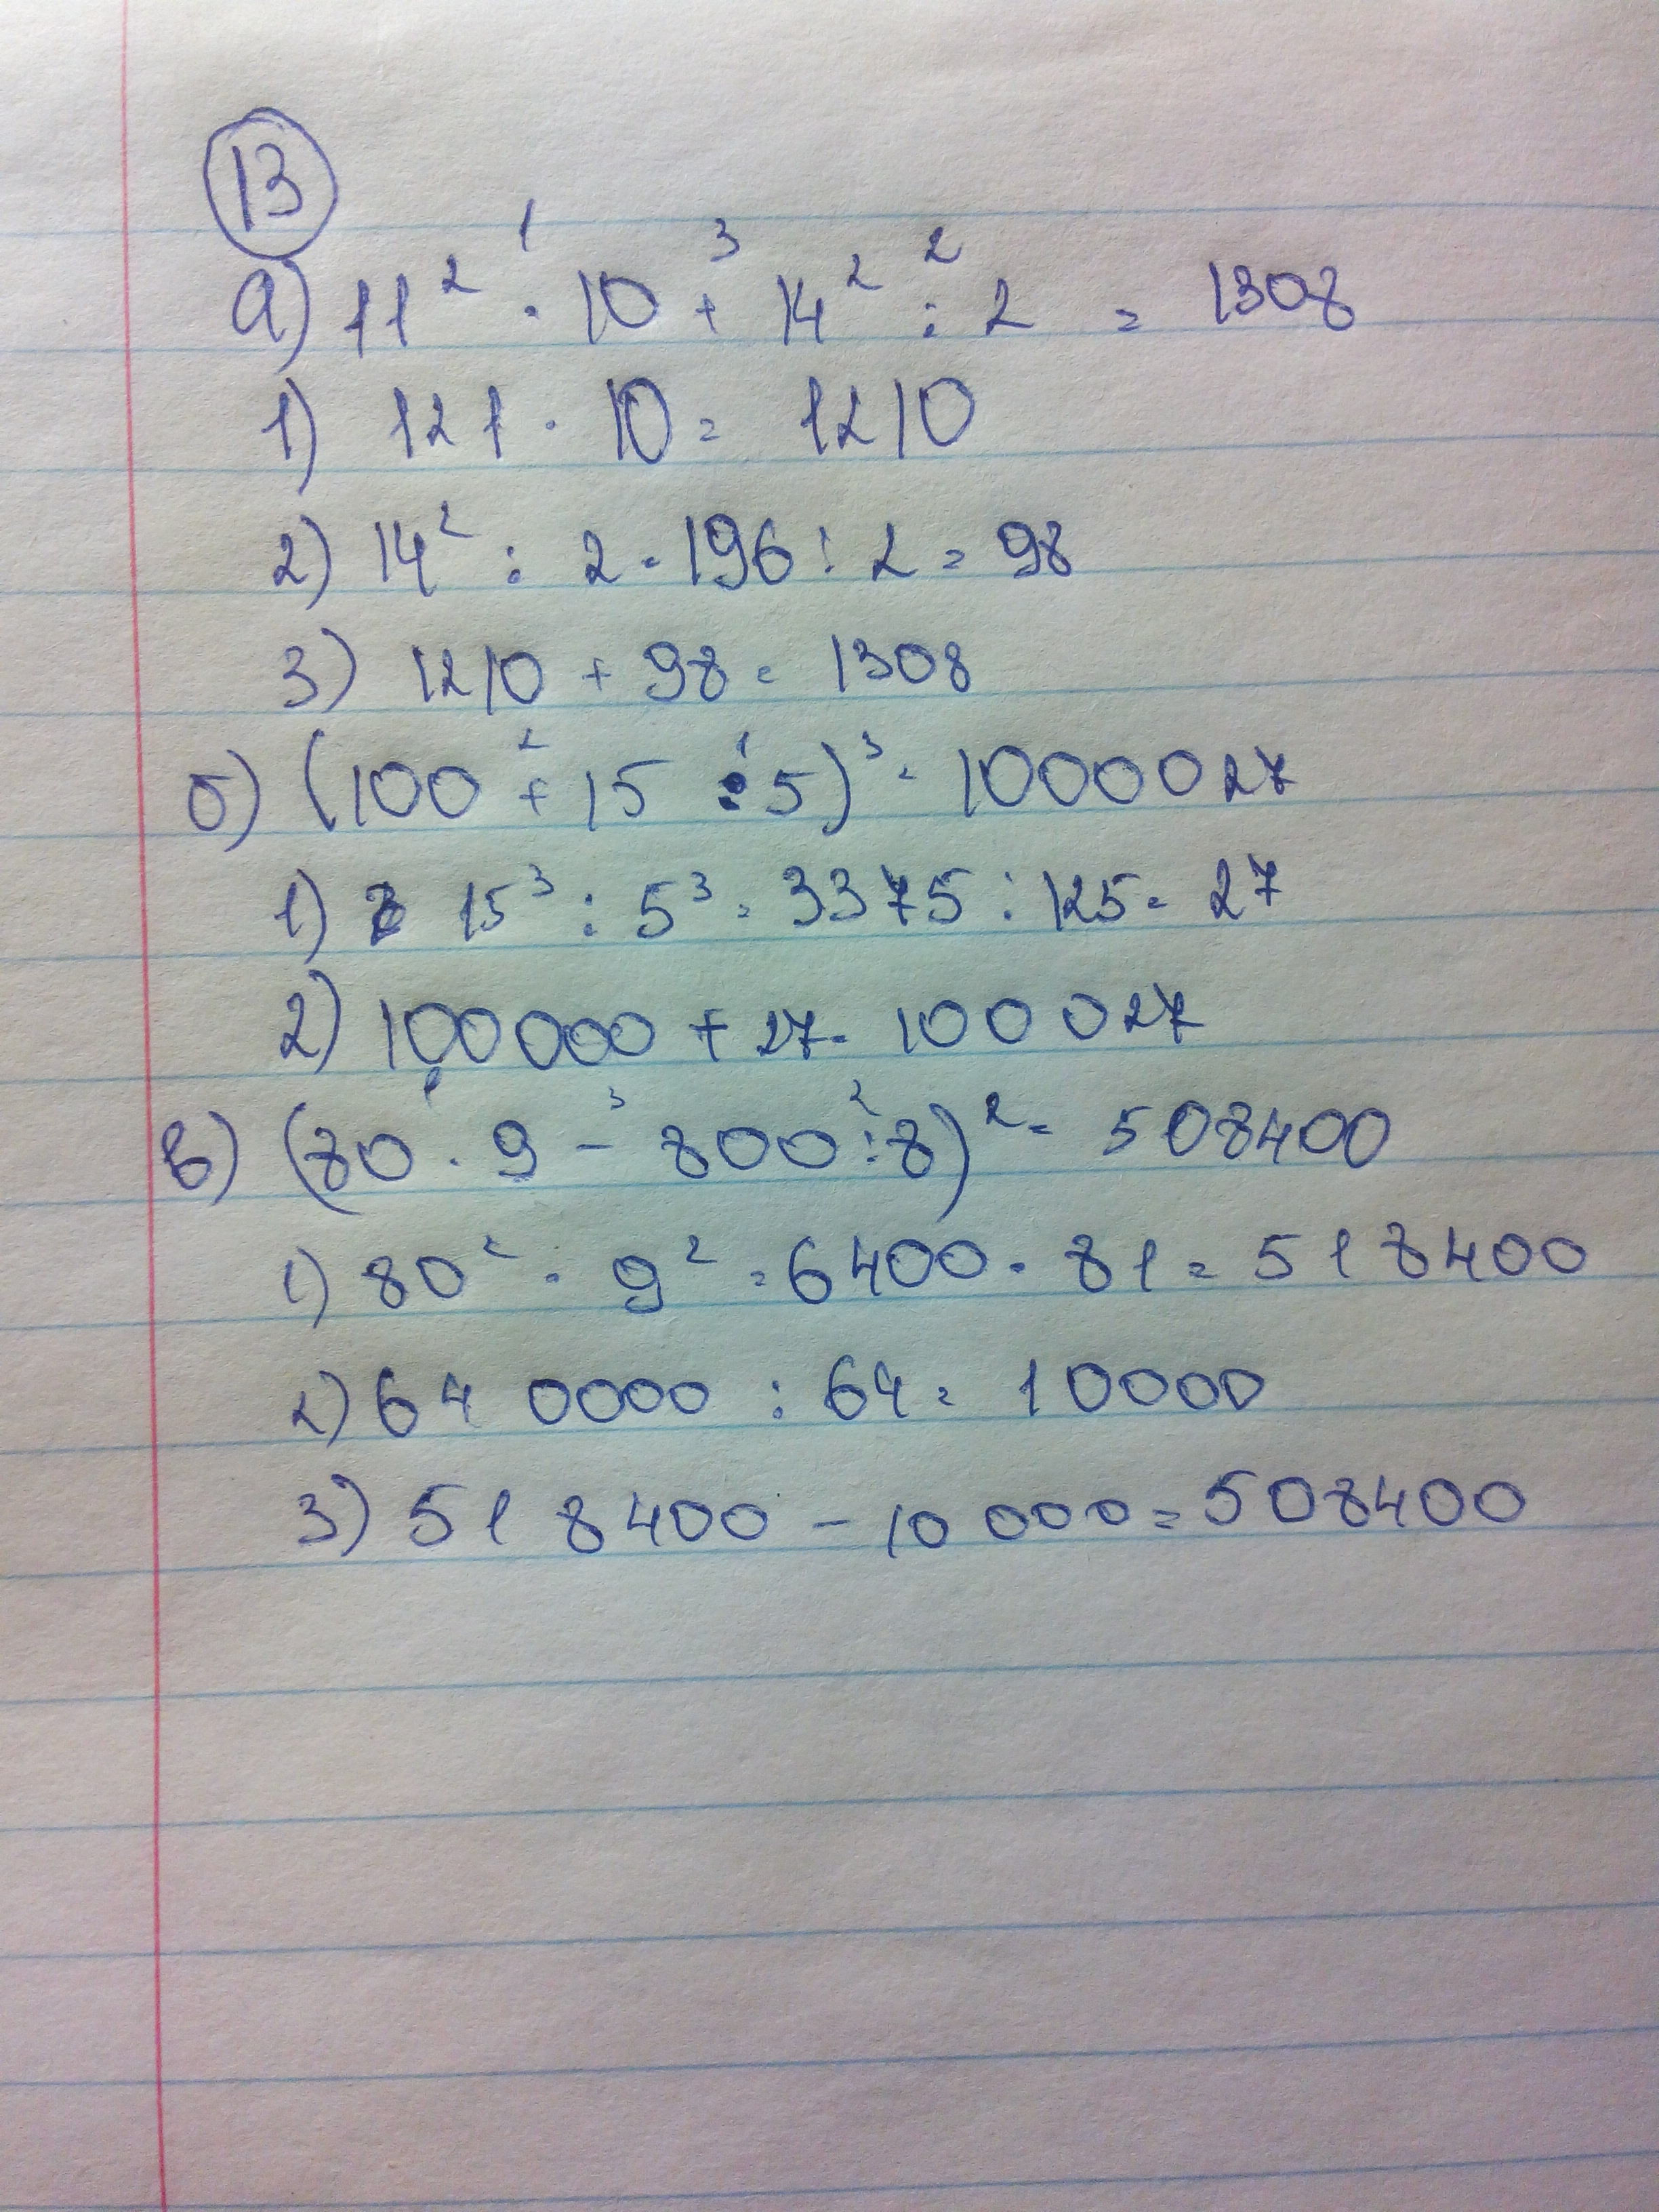 13
а) 11² · 10 + 14² : 2 = 1308
1) 121 · 10 = 1210
2) 14² : 2 = 196 : 2 = 98
3) 1210 + 98 = 1308
б) (100 + 15 : 5)³ = 1000027
1) 15³ : 5³ = 3375 : 125 = 27
2) 100000 + 27 = 100027
в) (80 · 9 - 800 : 8)² = 508400
1) 80² · 9² = 6400 · 81 = 518400
2) 640000 : 64 = 10000
3) 518400 - 10000 = 508400